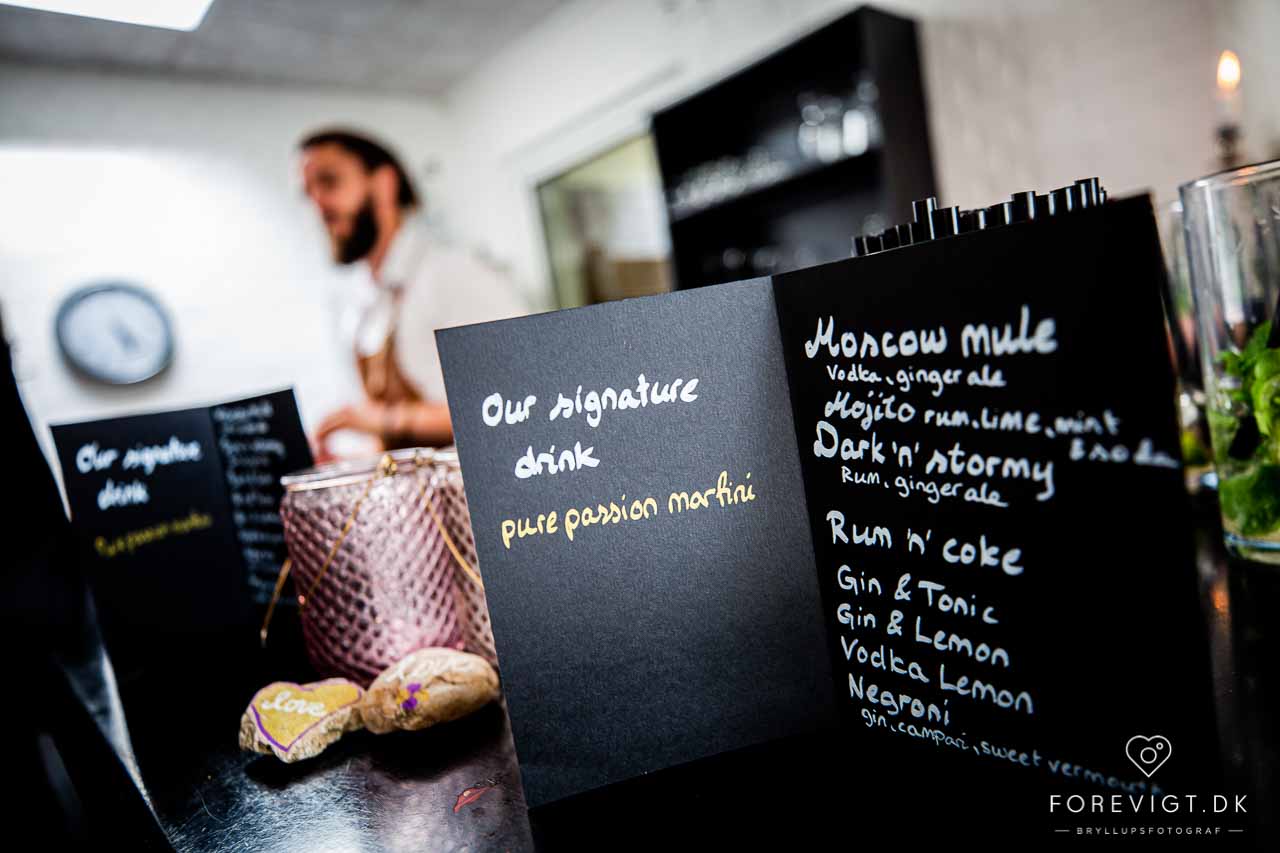 Our signature
drink
pure passion martini
Moscow mule
Vodka, ginger ale
Mojito rum, lime, mint
& soda
Dark 'n' stormy
Rum, ginger ale
Rum 'n' coke
Gin & Tonic
Gin & Lemon
Vodka Lemon
Negroni
gin, campari, sweet vermouth
Our signature
drink
Pure passion martini
love
FOREVIGT.DK
BRYLLUPSFOTOGRAF